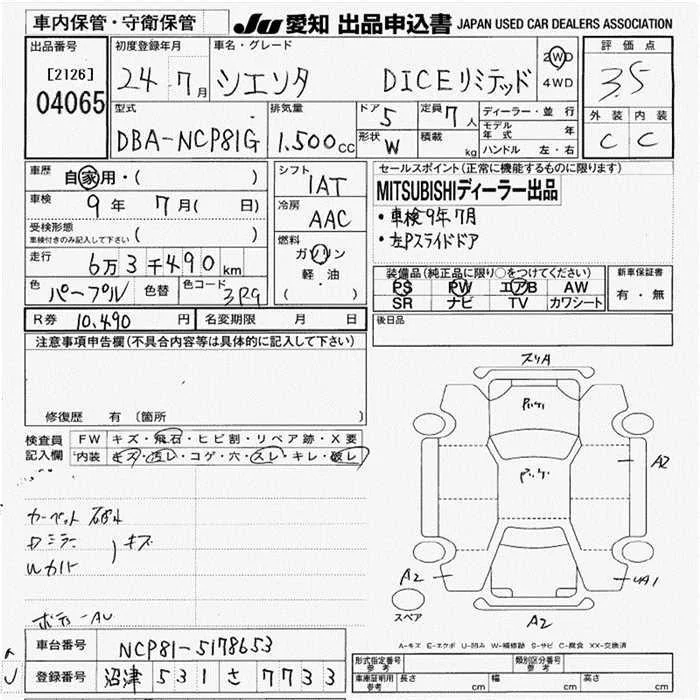 車内保管・守衛保管
JU 愛知 出品申込書 JAPAN USED CAR DEALERS ASSOCIATION
出品番号
[2126]
04065
初度登録年月
24 - 7月
車名・グレード
シエンタ DICEリミテッド
2WD
4WD
評価点
3.5
外装 内装
C C
型式
DBA-NCP81G
排気量
1.500cc
ドア 5
形状 W
定員 7人
積載 kg
ディーラー・並行
モデル年式 年
ハンドル 左・右
車歴 自家用・( )
車検 9年 7月( 日)
受検形態
車検付きのみ記入して下さい( )
走行 6万3千490km
色 パープル 色替 色コード 3R9
シフト
1AT
冷房
AAC
燃料
ガソリン
軽・油
( )
セールスポイント(正常に機能するものに限ります)
MITSUBISHIディーラー出品
・車検9年7月
・左Pスライドドア
装備品(純正品に限り○をつけてください)
PS PW エアB AW
SR ナビ TV カワシート
新車保証書
有・無
R券 10,490円 名変期限 月 日
後日品
注意事項申告欄(不具合内容等は具体的に記入して下さい)
修復歴 有 (箇所 )
検査員記入欄
FW キズ・飛石・ヒビ割・リペア跡・X要
内装 キズ・汚レ・コゲ・穴・スレ・キレ・破レ
カーペット 破れ
キズ
スリA
A2
A2
A2
スペア
A-キズ E-エクボ U-凹み W-補修跡 S-サビ C-腐食 XX-交換済
車台番号 NCP81-5178653
登録番号 沼津 531 さ 7733
形式指定番号 参考
類別区分番号 参考
車庫証明用 参考 長さ cm 幅 cm 高さ cm